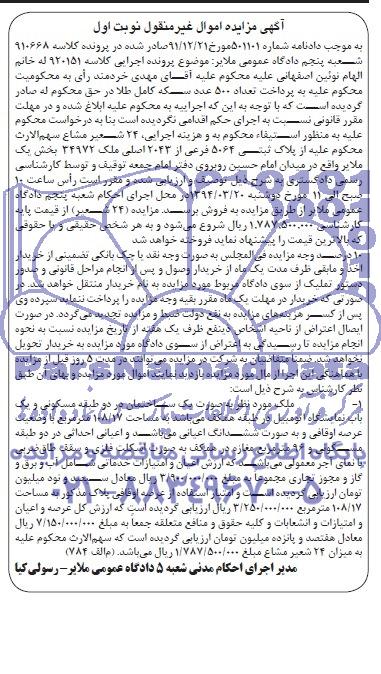 آگهی مزایده اموال غیرمنقول نوبت اول
به موجب دادنامه شماره ۵۰۱۱۰۱مورخ۹۱/۱۲/۲۱صادر شده در پرونده کلاسه ۹۱۰۶۶۸
شعبه پنجم دادگاه عمومی ملایر: موضوع پرونده اجرایی کلاسه ۹۲۰۱۵۱ له خانم
الهام نوئین اصفهانی علیه محکوم علیه آقای مهدی خردمند رأی به محکومیت
محکوم علیه به پرداخت تعداد ۵۰۰ عدد سکه کامل طلا در حق محکوم له صادر
گردیده است که با توجه به این که اجراییه به محکوم علیه ابلاغ شده و در مهلت
مقرر قانونی نسبت به اجرای حکم اقدامی نگردیده است بنا به درخواست محکوم
علیه به منظور استیفاء محکوم به و هزینه اجرایی، ۲۴ شعیر مشاع سهم‌الارث
محکوم علیه از پلاک ثبتی ۵۰۶۴ فرعی از ۲۰۴۳ اصلی ملک ۳۴۹۷۲ بخش یک
ملایر واقع در میدان امام حسین روبروی دفتر امام جمعه توقیف و توسط کارشناسی
رسمی دادگستری به شرح ذیل توصیف و ارزیابی شده و مقرر است رأس ساعت ۱۰
صبح الی ۱۱ مورخ دوشنبه ۱۳۹۴/۰۳/۲۰ در محل اجرای احکام شعبه پنجم دادگاه
عمومی ملایر از طریق مزایده به فروش برسد. مزایده (۲۴ شعیر) از قیمت پایه
کارشناسی ۱.۷۸۷.۵۰۰.۰۰۰ ریال شروع می‌شود و به هر شخص حقیقی و یا حقوقی
که بالاترین قیمت را پیشنهاد نماید فروخته خواهد شد
۱۰درصد وجه مزایده فی‌المجلس به صورت وجه نقد یا چک بانکی تضمینی از خریدار
اخذ و مابقی ظرف مدت یک ماه از خریدار وصول و پس از انجام مراحل قانونی و صدور
دستور تملیک از سوی دادگاه مربوط مورد مزایده به نام خریدار منتقل خواهد شد. در
صورتی که خریدار در مهلت یک ماه مقرر بقیه وجه مزایده را پرداخت ننماید سپرده وی
پس از کسر هزینه‌های مزایده به نفع دولت ضبط و مزایده تجدید می‌گردد. در صورت
ایصال اعتراض از ناحیه اشخاص ذینفع ظرف یک هفته از تاریخ مزایده نسبت به نحوه
انجام مزایده تا رسیدگی به اعتراض از سوی دادگاه مورد مزایده به خریدار تحویل
نخواهد شد. ضمنا متقاضیان به شرکت در مزایده می‌توانند در مدت ۵ روز قبل از مزایده
با هماهنگی این اجرا از مال مورد مزایده بازدید نمایند اموال مورد مزایده و بهای آن طبق
نظر کارشناس به شرح ذیل است:
۱- ملک مورد نظر به صورت یک ساختمان در دو طبقه مسکونی و یک
باب نمایشگاه اتومبیل در طبقه همکف می‌باشد به مساحت ۱۰۸/۱۷ مترمربع با وضعیت
عرصه اوقافی و به صورت ششدانگ اعیانی می‌باشد و اعیانی احداثی در دو طبقه
مسکونی و ۹۴ مترمربع مغازه در همکف به صورت اسکلت فلزی و سقف طاق‌ضربی
با نمای آجر معمولی می‌باشد که ارزش اعیان و امتیازات خدماتی شامل آب و برق و
گاز و مجوز تجاری مجموعا به مبلغ ۳/۹۰۰/۰۰۰/۰۰۰ ریال معادل سیصد و نود میلیون
تومان ارزیابی گردیده است و امتیاز استفاده از عرصه اوقافی پلاک مذکور به مساحت
۱۰۸/۱۷ مترمربع ۳/۲۵۰/۰۰۰/۰۰۰ ریال ارزیابی گردیده است که ارزش کل عرصه و اعیان
و امتیازات و انشعابات و کلیه حقوق و منافع متعلقه جمعا به مبلغ ۷/۱۵۰/۰۰۰/۰۰۰ ریال
معادل هفتصد و پانزده میلیون تومان ارزیابی گردیده است که سهم‌الارث محکوم علیه
به میزان ۲۴ شعیر مشاع مبلغ ۱/۷۸۷/۵۰۰/۰۰۰ ریال می‌باشد. (م‌الف ۷۸۴)
مدیر اجرای احکام مدنی شعبه ۵ دادگاه عمومی ملایر– رسولی‌کیا